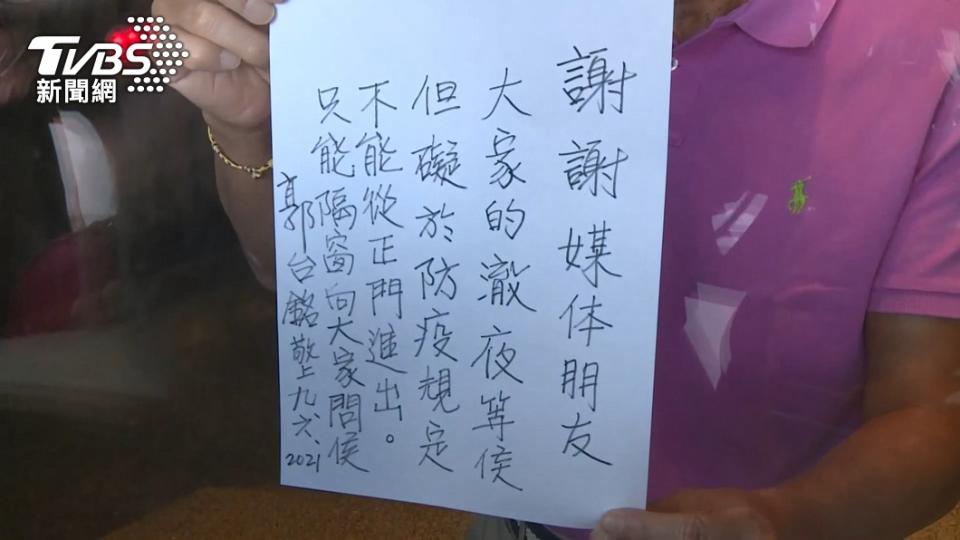 TVBS
新聞網
謝謝媒体朋友
大家的澈夜等侯
但礙於防疫規定
不能從正門進出。
只能隔窗向大家問侯
郭台銘敬上九、六、2021